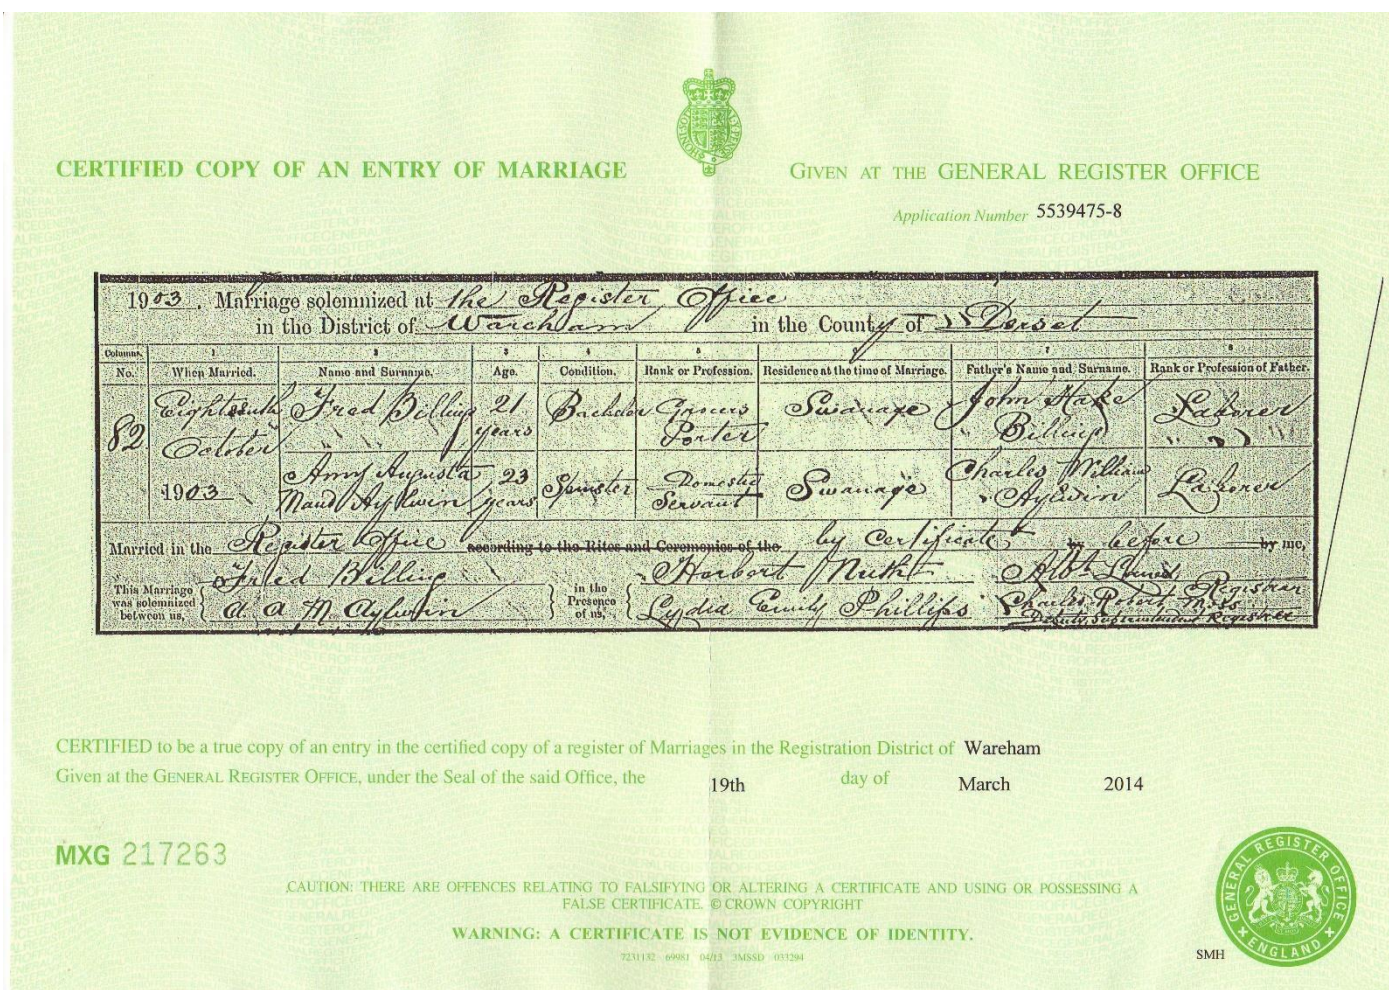 CERTIFIED COPY OF AN ENTRY OF MARRIAGE
GIVEN AT THE GENERAL REGISTER OFFICE
Application Number 5539475-8
1903. Marriage solemnized at the Register Office
in the District of Wareham in the County of Dorset
Columns. 1 2 3 4 5 6 7 8
No. When Married. Name and Surname. Age. Condition. Rank or Profession. Residence at the time of Marriage. Father's Name and Surname. Rank or Profession of Father.
82 Eighteenth October 1903
Fred Billing 21 years Bachelor Grocers Porter Swanage John Hake Billing Laborer
Amy Augusta Maud Aylwin 23 years Spinster Domestic Servant Swanage Charles William Aylwin Laborer
Married in the Register Office according to the Rites and Ceremonies of the by Certificate by before by me,
This Marriage was solemnized between us, Fred Billing
A. A. M. Aylwin
in the Presence of us, Herbert
Lydia Emily Phillips
Registrar
Charles Robert Moss
Deputy Superintendent Registrar
CERTIFIED to be a true copy of an entry in the certified copy of a register of Marriages in the Registration District of Wareham
Given at the GENERAL REGISTER OFFICE, under the Seal of the said Office, the 19th day of March 2014
MXG 217263
CAUTION: THERE ARE OFFENCES RELATING TO FALSIFYING OR ALTERING A CERTIFICATE AND USING OR POSSESSING A
FALSE CERTIFICATE. © CROWN COPYRIGHT
WARNING: A CERTIFICATE IS NOT EVIDENCE OF IDENTITY.
7231132 69981 04/13 3MSSD 033294
SMH
GENERAL REGISTER OFFICE
ENGLAND